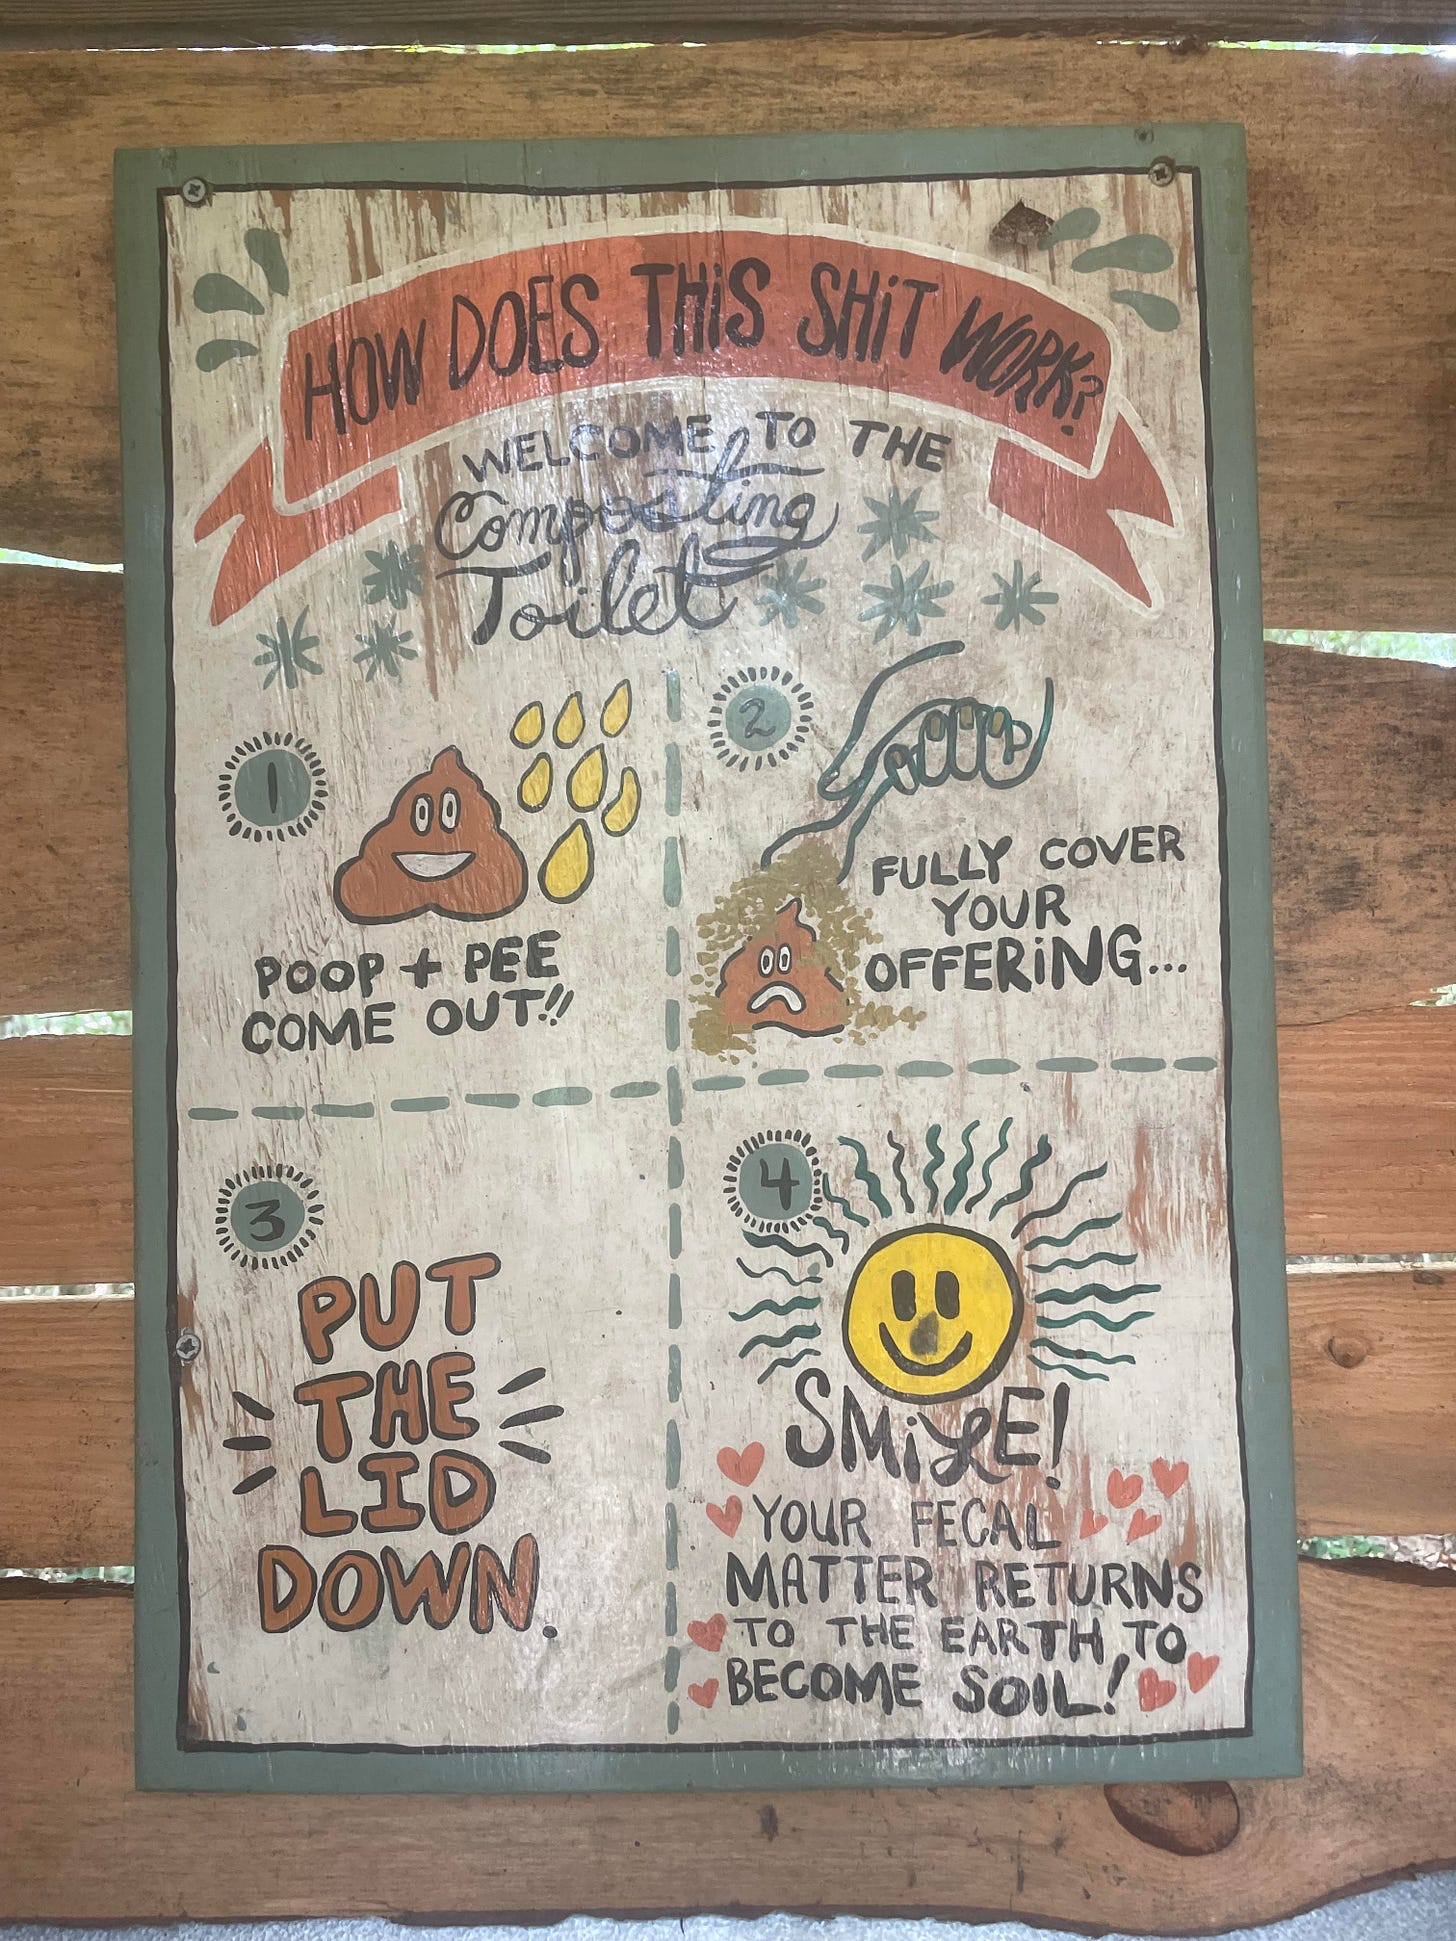 HOW DOES THiS SHiT WORK?
WELCOME TO THE
Composting
Toilet
1
POOP + PEE
COME OUT!!
2
FULLY COVER
YOUR
OFFERiNG...
3
PUT
THE
LID
DOWN.
4
SMiLE!
YOUR FECAL
MATTER RETURNS
TO THE EARTH TO
BECOME SOIL!